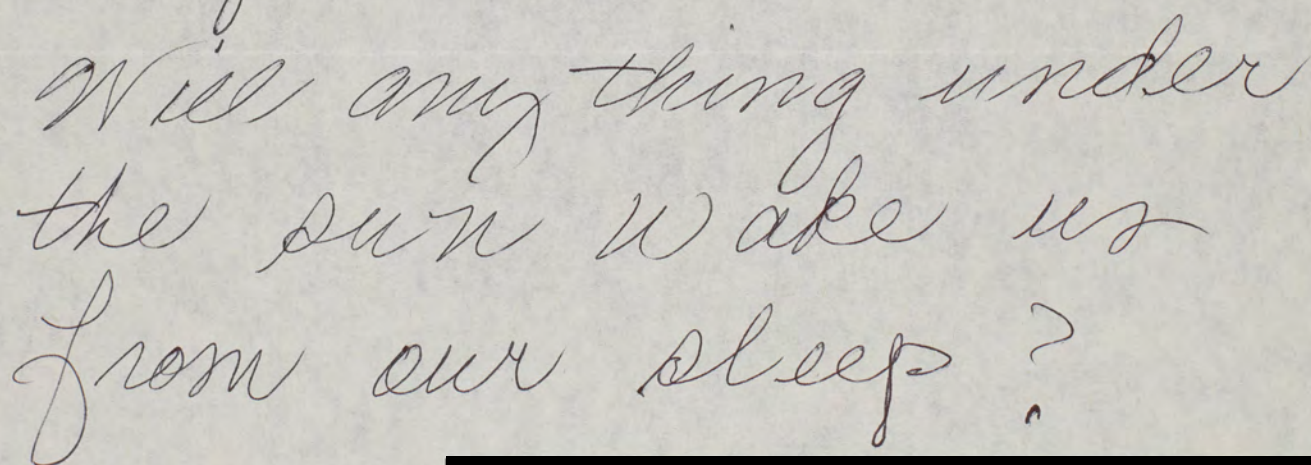 Will any thing under
the sun wake us
from our sleep?